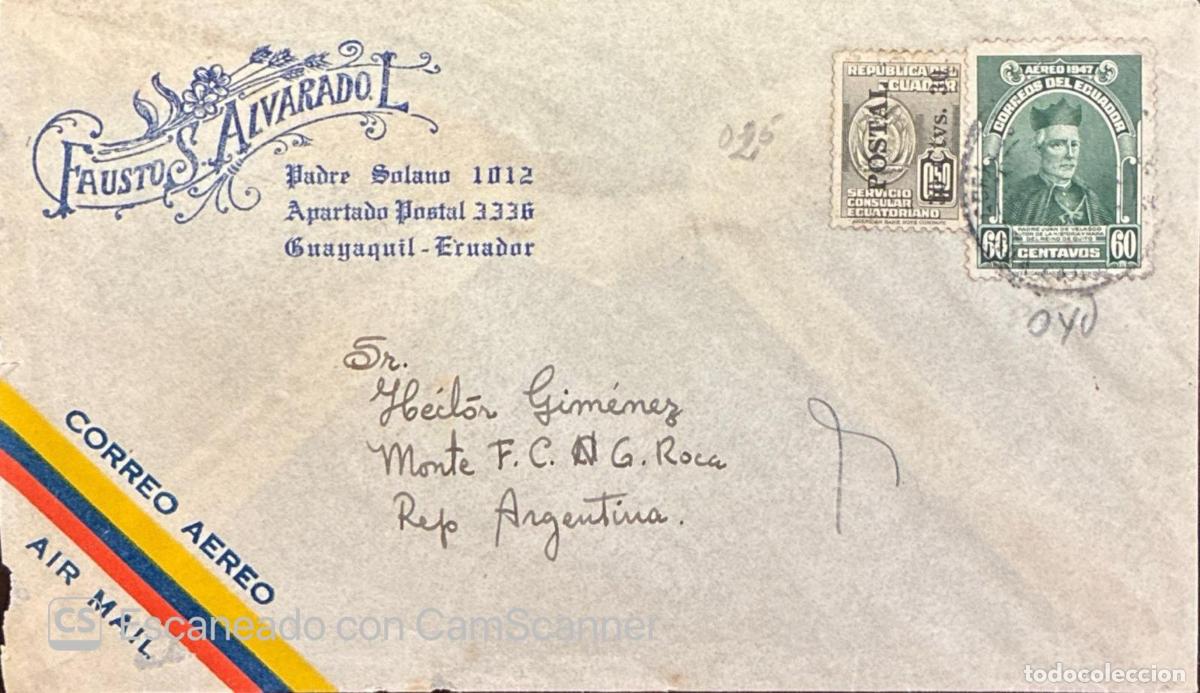 FAUSTO S. ALVARADO. L
Padre Solano 1012
Apartado Postal 3336
Guayaquil - Ecuador
025
REPUBLICA DEL
ECUADOR
POSTAL
ctvs.
0.50
SERVICIO
CONSULAR
ECUATORIANO
AMERICAN BANK NOTE COMPANY
AÉREO 1947
CORREOS DEL ECUADOR
PADRE JUAN DE VELASCO
AUTOR DE LA HISTORIA Y MAPA
DEL REINO DE QUITO
60 CENTAVOS 60
Sr.
Héctor Giménez
Monte F. C. N G. Roca
Rep Argentina.
CORREO AEREO
AIR MAIL
CS Escaneado con CamScanner
todocoleccion